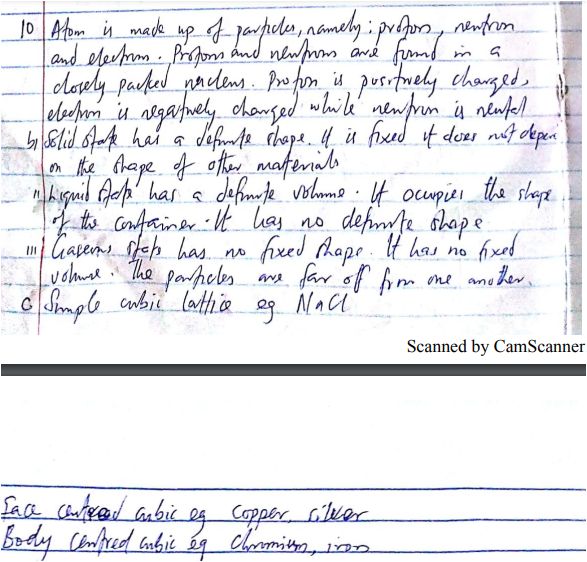 10 Atom is made up of particles, namely: proton, neutron
and electron. Protons and neutrons are found in a
closely packed nucleus. Proton is positively charged,
electron is negatively charged while neutron is neutral
b) Solid state has a definite shape. It is fixed it does not depen
on the shape of other materials
ii) Liquid state has a definite volume. It occupies the shape
of the container. It has no definite shape
iii) Gaseous state has no fixed shape. It has no fixed
volume. The particles are far off from one another.
c Simple cubic lattice eg NaCl
Scanned by CamScanner
Face centred cubic eg Copper, silver
Body centred cubic eg Chromium, iron